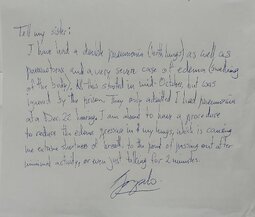 Tell my sister:
I have had a double pneumonia (both lungs) as well as
pneumothorax, and a very severe case of edema (swelling
of the body). All this started in mid-October, but was
ignored by the prison. They only admitted I had pneumonia
at a Dec. 26 hearing. I am about to have a procedure
to reduce the edema pressure in my lungs, which is causing
me extreme shortness of breath, to the point of passing out after
minimal activity, or even just talking for 2 minutes.